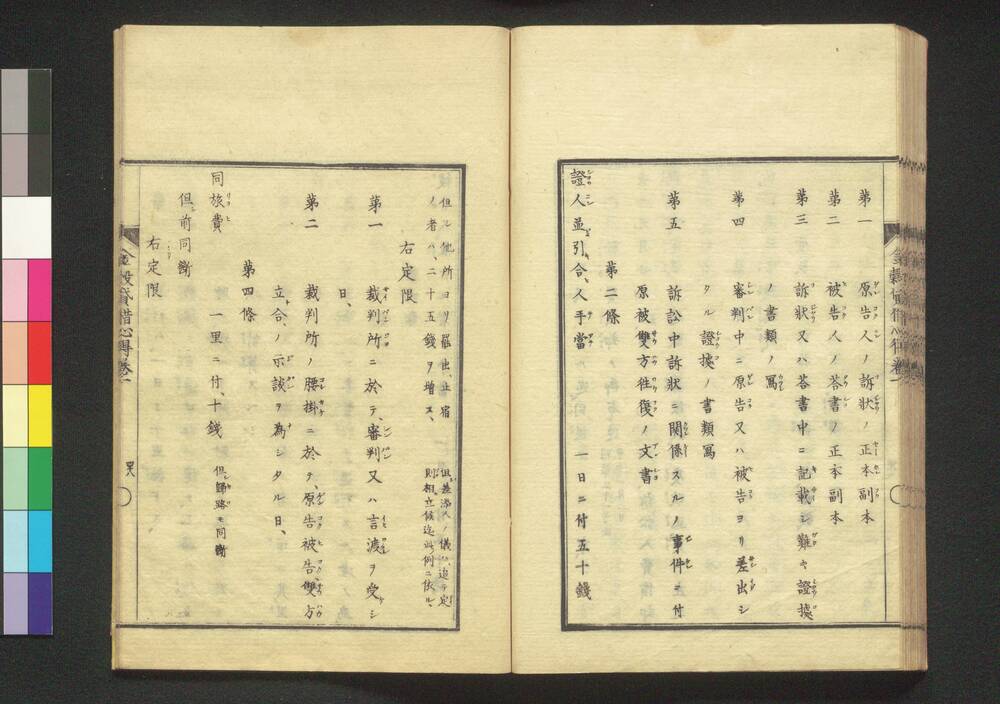 第一　原告人ノ訴狀ノ正本副本
第二　被告人ノ荅書ノ正本副本
第三　訴狀又ハ荅書中ニ記載シ難キ證據
ノ書類ノ寫
第四　審判中ニ原告又ハ被告ヨリ差出シ
タル證據ノ書類寫
第五　訴訟中訴狀ニ関係スルノ事件ニ付
原被雙方往復ノ文書
第二條
證人並引合人手當　一日ニ付五十錢
但シ他所ヨリ罷出止宿
ノ者ハ、二十五錢ヲ増ス、
但差添人ノ儀ハ、追テ定
則相立候迄此例ニ依ル、
右定限
第一　裁判所ニ於テ、審判又ハ言渡ヲ受シ
日、
第二　裁判所ノ腰掛ニ於テ、原告被告雙方
立合、ノ示談ヲ為シタル日、
第四條
同旅費　一里ニ付、十錢　但シ歸路モ同斷
但、前同斷
右定限
金穀貸借心得卷一
四十八